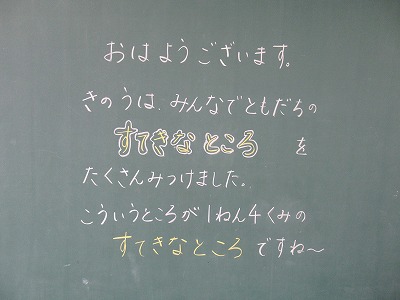 おはようございます。
きのうは、みんなでともだちの
すてきなところ を
たくさんみつけました。
こういうところが1ねん4くみの
すてきなところ ですね～